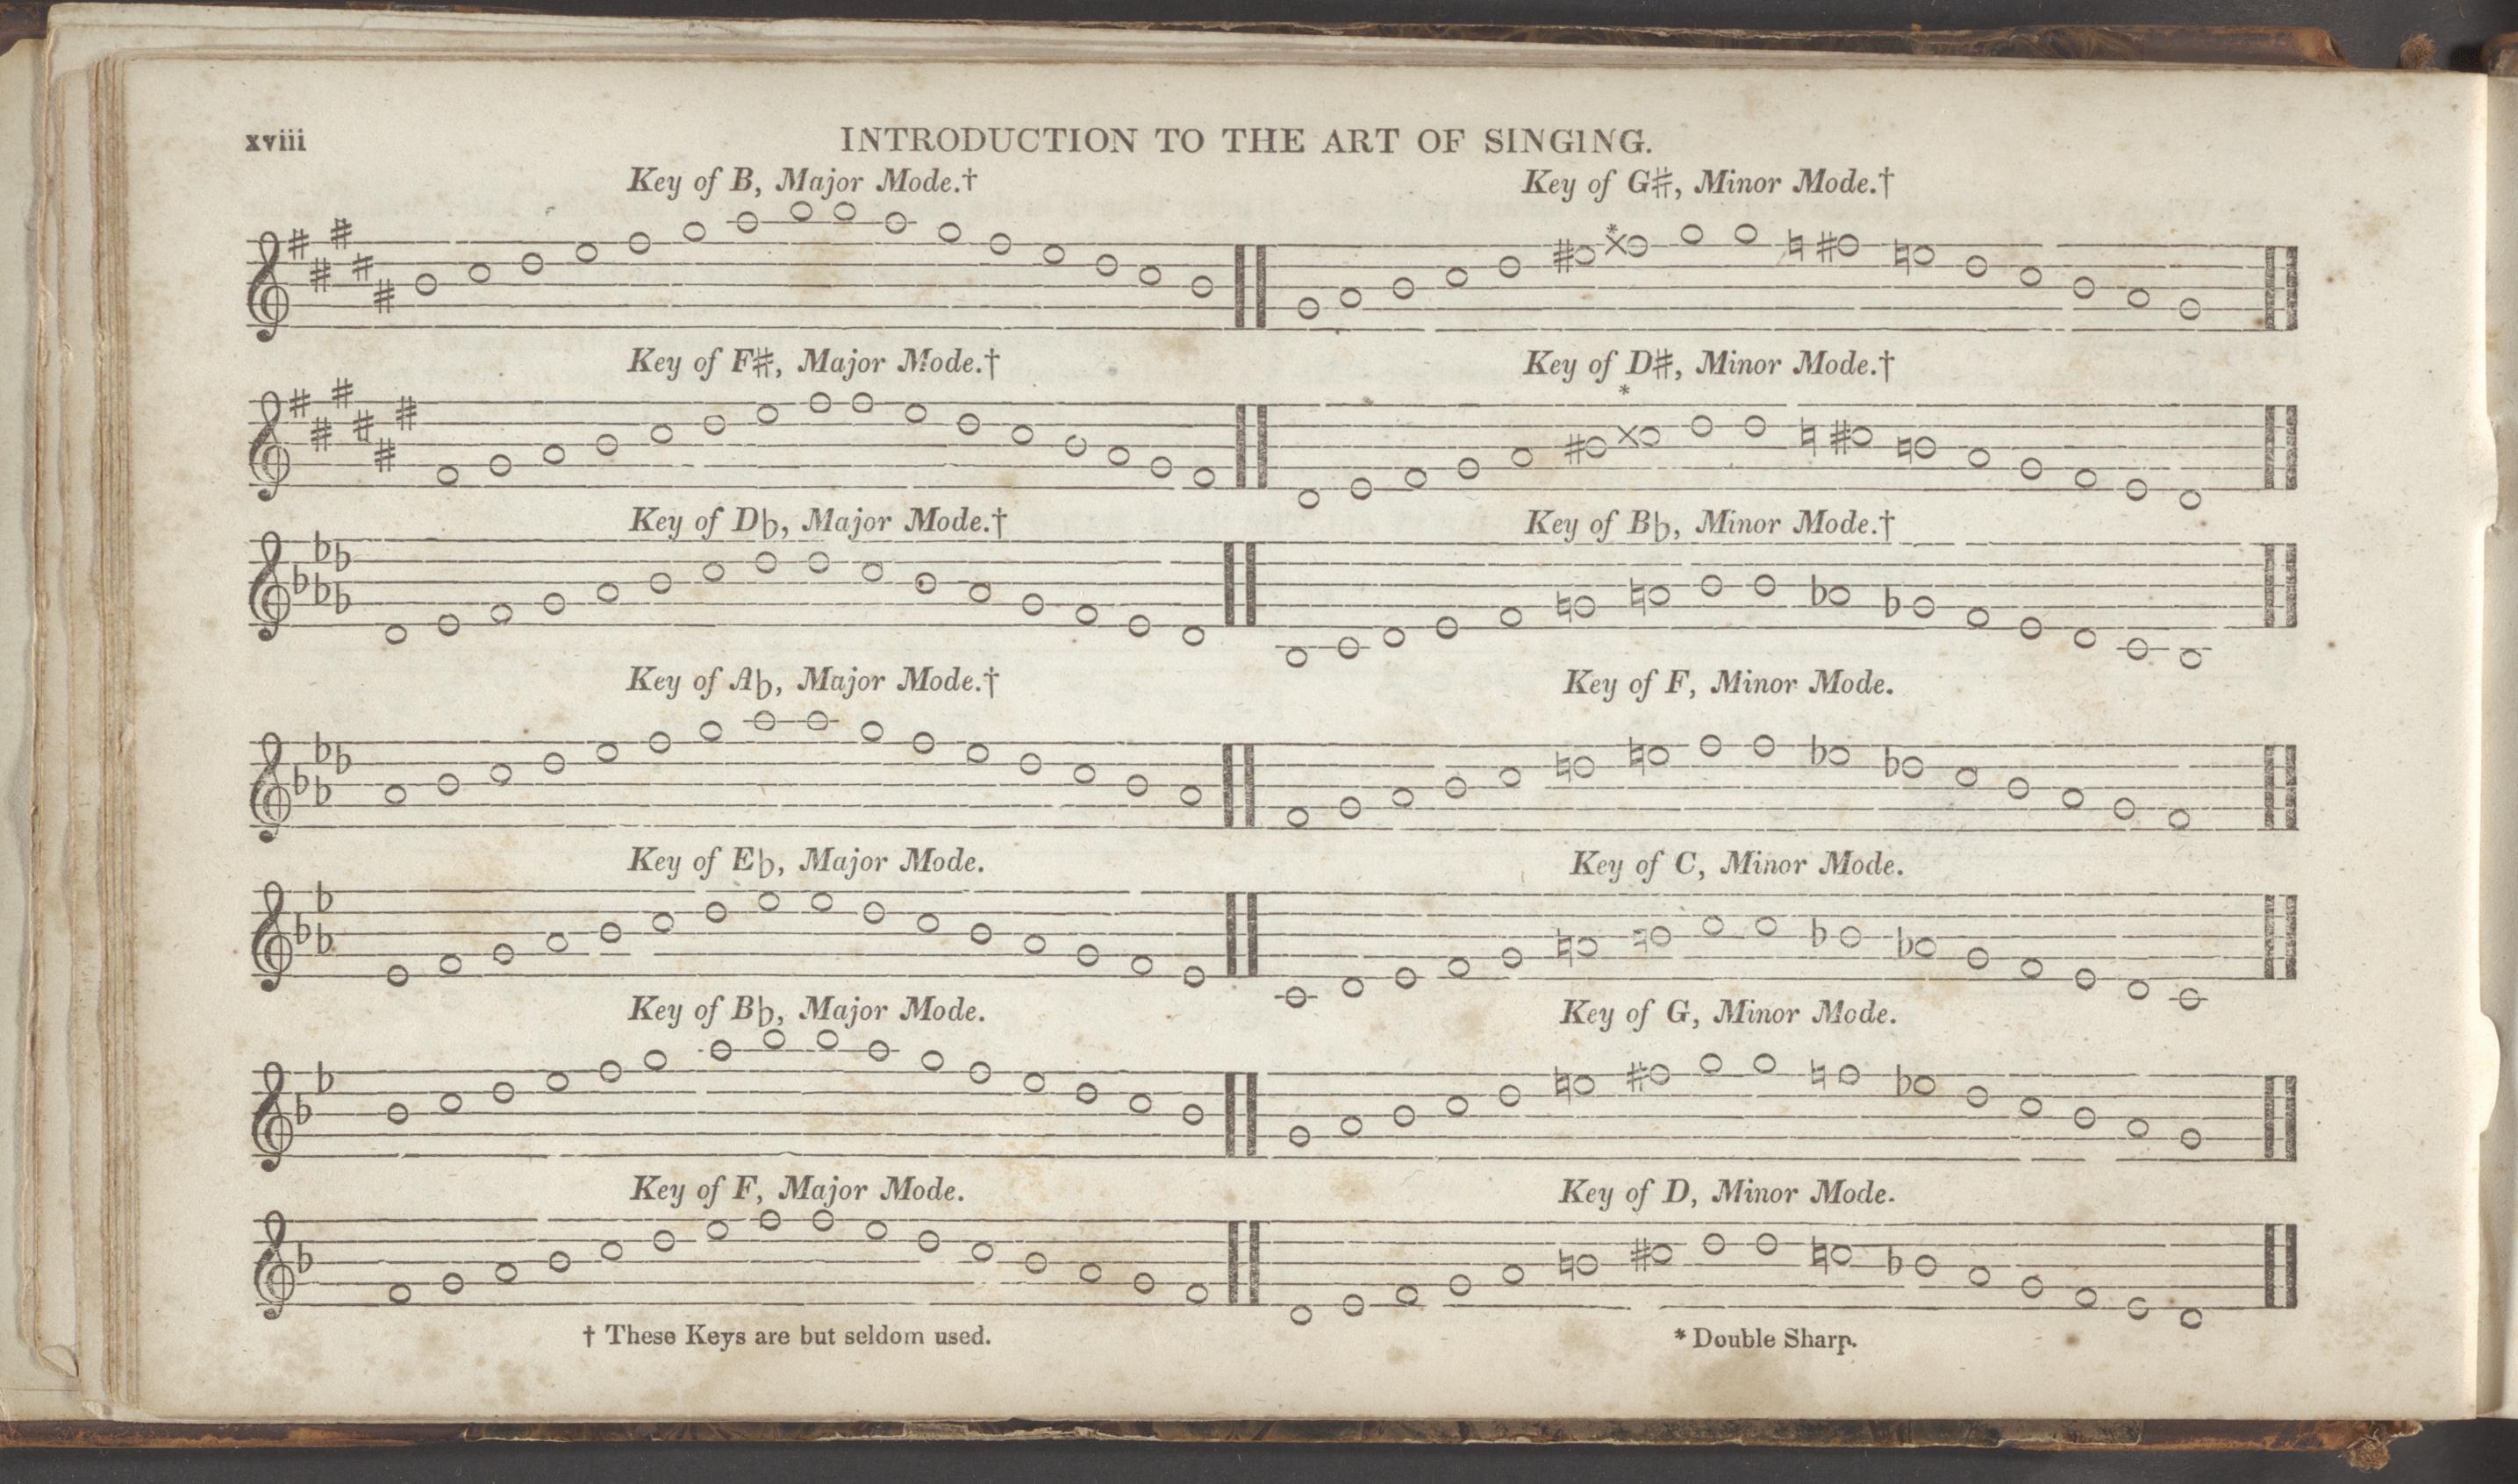 xviii
INTRODUCTION TO THE ART OF SINGING.
Key of B, Major Mode.†
Key of G♯, Minor Mode.†
*
Key of F♯, Major Mode.†
Key of D♯, Minor Mode.†
*
Key of D♭, Major Mode.†
Key of B♭, Minor Mode.†
Key of A♭, Major Mode.†
Key of F, Minor Mode.
Key of E♭, Major Mode.
Key of C, Minor Mode.
Key of B♭, Major Mode.
Key of G, Minor Mode.
Key of F, Major Mode.
Key of D, Minor Mode.
† These Keys are but seldom used.
* Double Sharp.